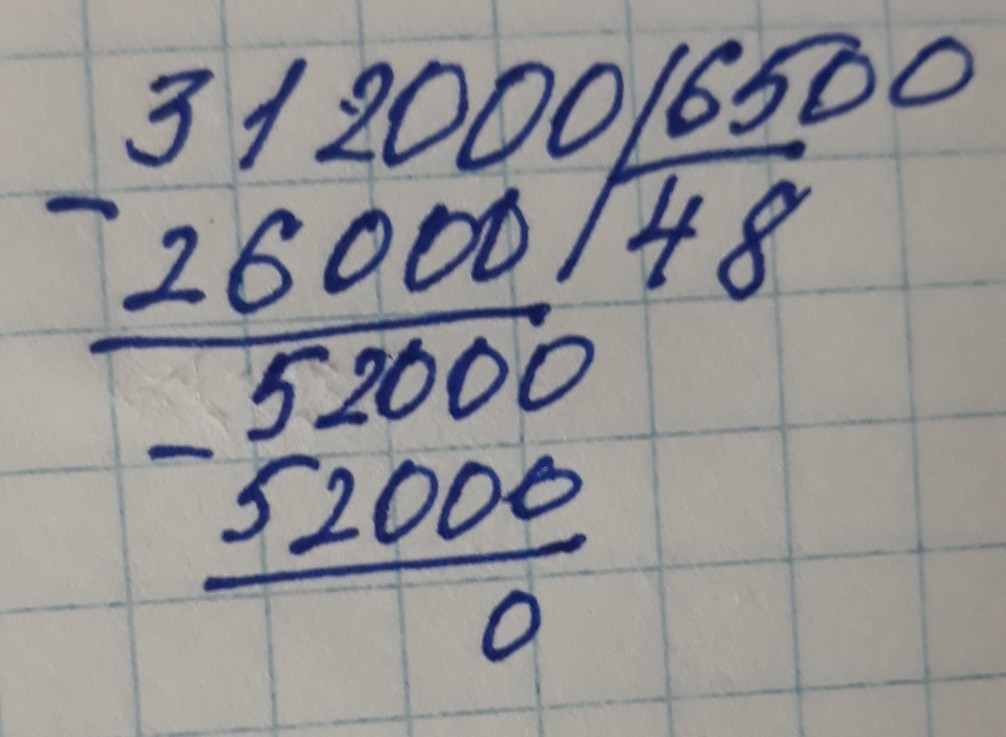 312000/6500
- 26000/48
52000
- 52000
0